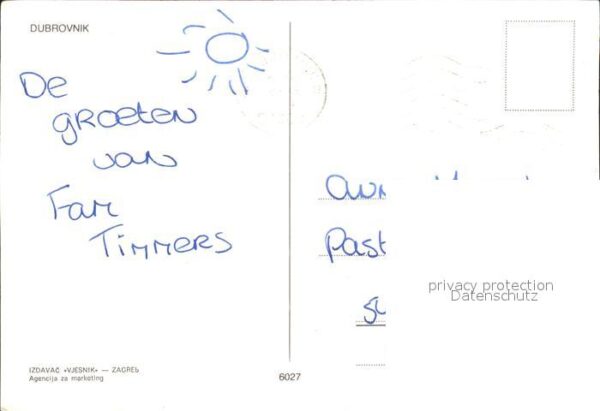 DUBROVNIK
De
groeten
van
Fam
Timmers
Past
privacy protection
Datenschutz
IZDAVAČ «VJESNIK» — ZAGREB
Agencija za marketing
6027